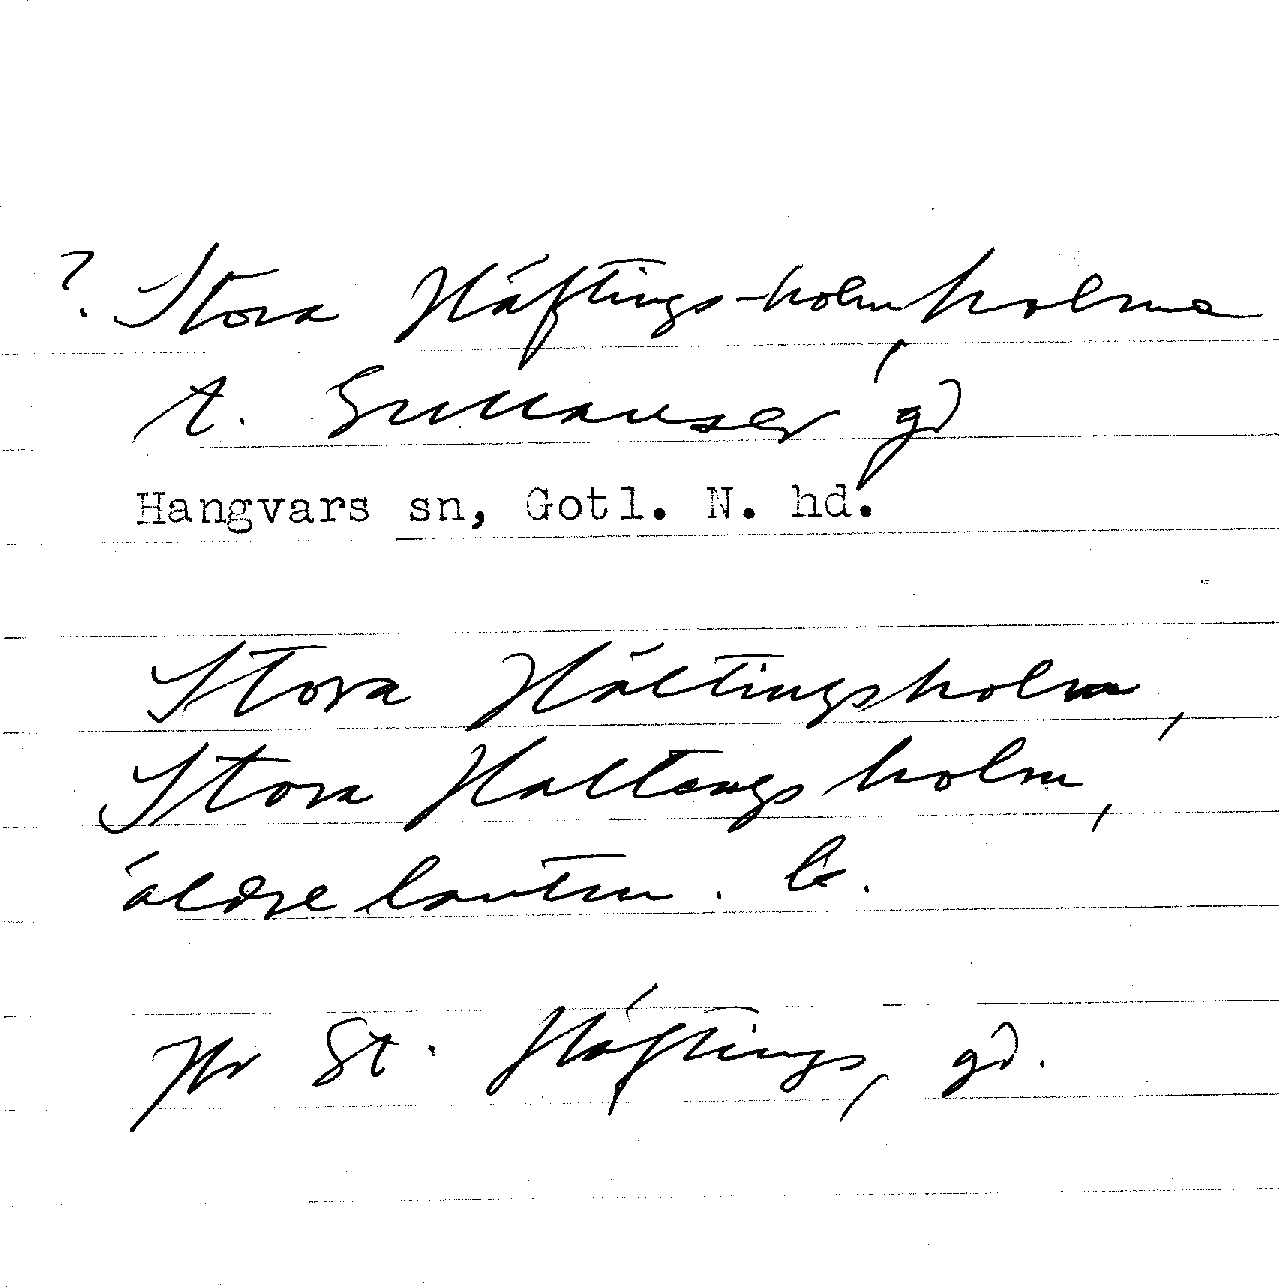 ? Stora Häftings-holmholme
t. Sulhause, gd
Hangvars sn, Gotl. N. hd.
Stora Hältingsholm,
Stora Haltangsholm,
äldre lantm. b.
Hr St. Häftings, gd.